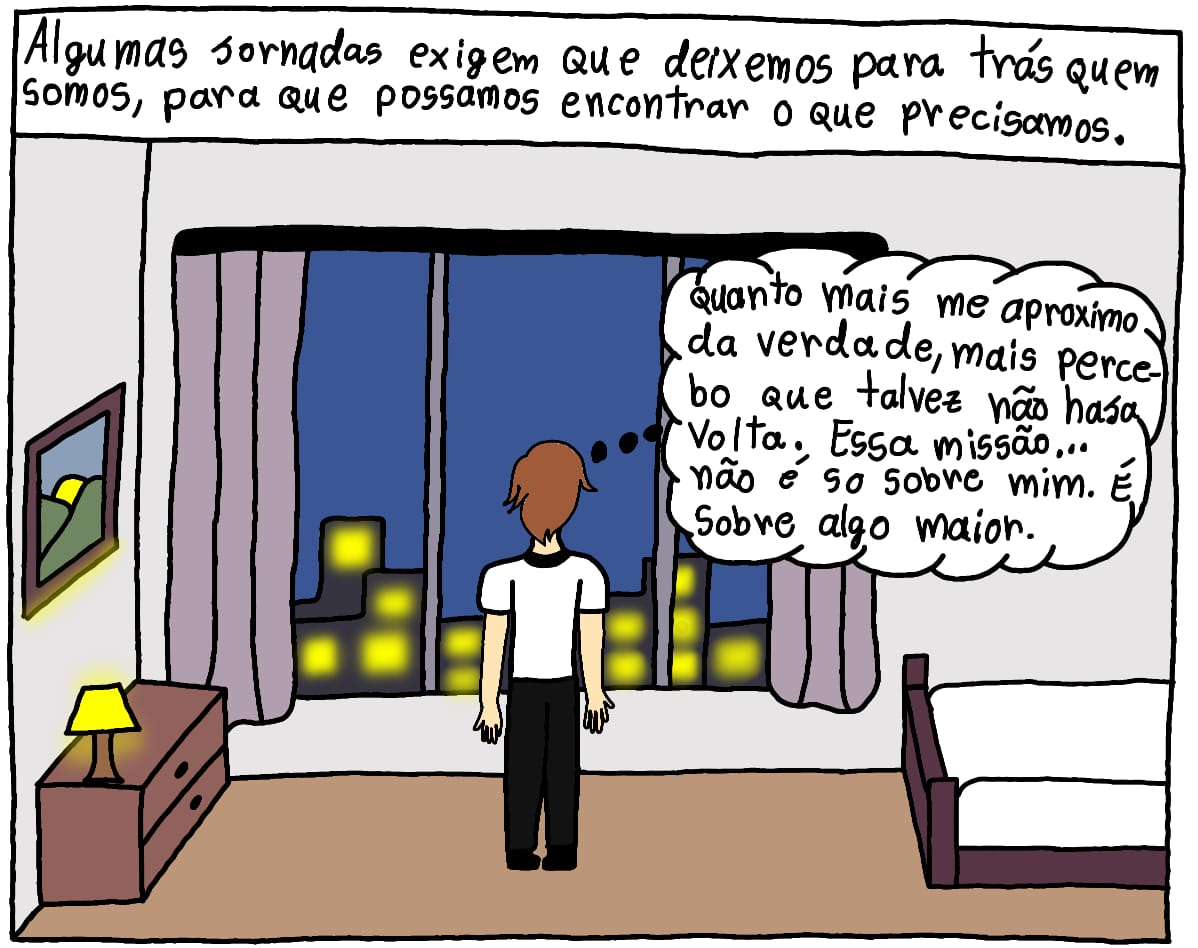 Algumas jornadas exigem que deixemos para trás quem
somos, para que possamos encontrar o que precisamos.
Quanto mais me aproximo
da verdade, mais perce-
bo que talvez não haja
volta. Essa missão...
não é so sobre mim. É
sobre algo maior.